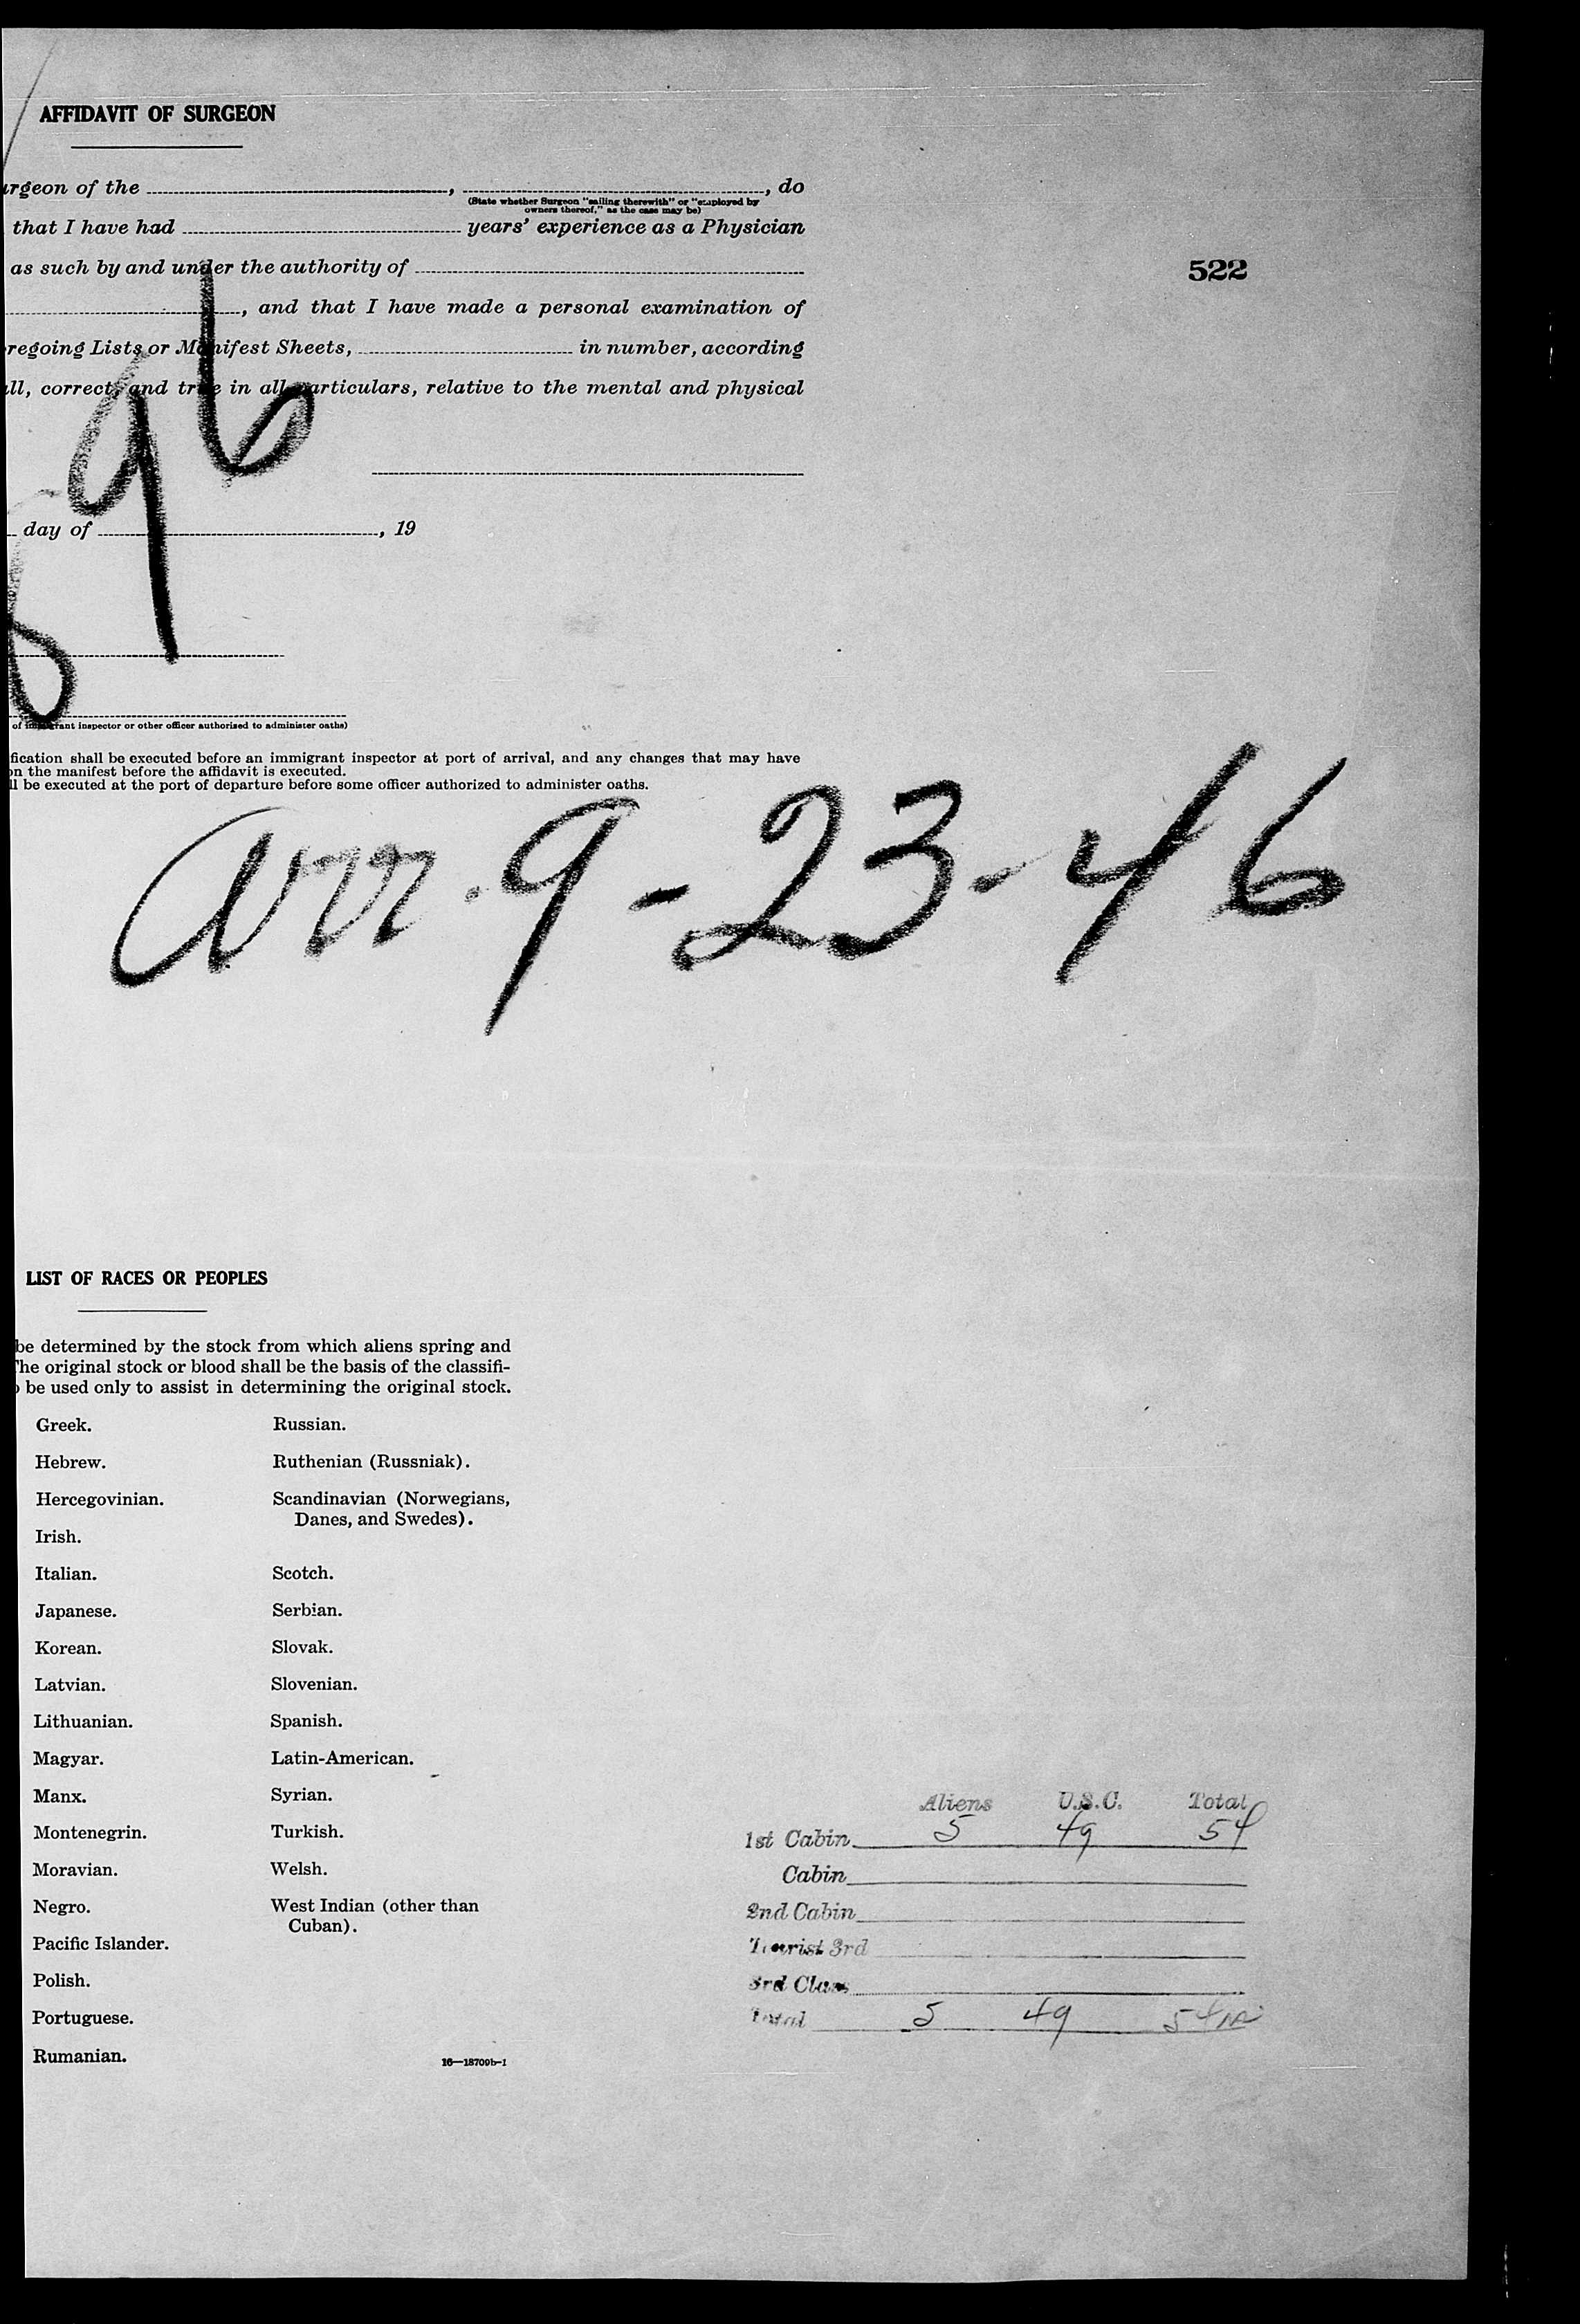 AFFIDAVIT OF SURGEON
urgeon of the , , do
(State whether Surgeon "sailing therewith" or "employed by
owners thereof," as the case may be)
that I have had years' experience as a Physician
as such by and under the authority of
522
, and that I have made a personal examination of
regoing Lists or Manifest Sheets, in number, according
ll, correct, and true in all particulars, relative to the mental and physical
96
day of , 19
of immigrant inspector or other officer authorized to administer oaths)
fication shall be executed before an immigrant inspector at port of arrival, and any changes that may have
on the manifest before the affidavit is executed.
ll be executed at the port of departure before some officer authorized to administer oaths.
arr. 9-23-46
LIST OF RACES OR PEOPLES
be determined by the stock from which aliens spring and
The original stock or blood shall be the basis of the classifi-
o be used only to assist in determining the original stock.
Greek. Russian.
Hebrew. Ruthenian (Russniak).
Hercegovinian. Scandinavian (Norwegians,
Danes, and Swedes).
Irish.
Italian. Scotch.
Japanese. Serbian.
Korean. Slovak.
Latvian. Slovenian.
Lithuanian. Spanish.
Magyar. Latin-American.
Manx. Syrian.
Montenegrin. Turkish.
Moravian. Welsh.
Negro. West Indian (other than
Cuban).
Pacific Islander.
Polish.
Portuguese.
Rumanian.
16—18709b-1
Aliens U.S.C. Total
1st Cabin 5 49 54
Cabin
2nd Cabin
Tourist 3rd
3rd Class
Total 5 49 54